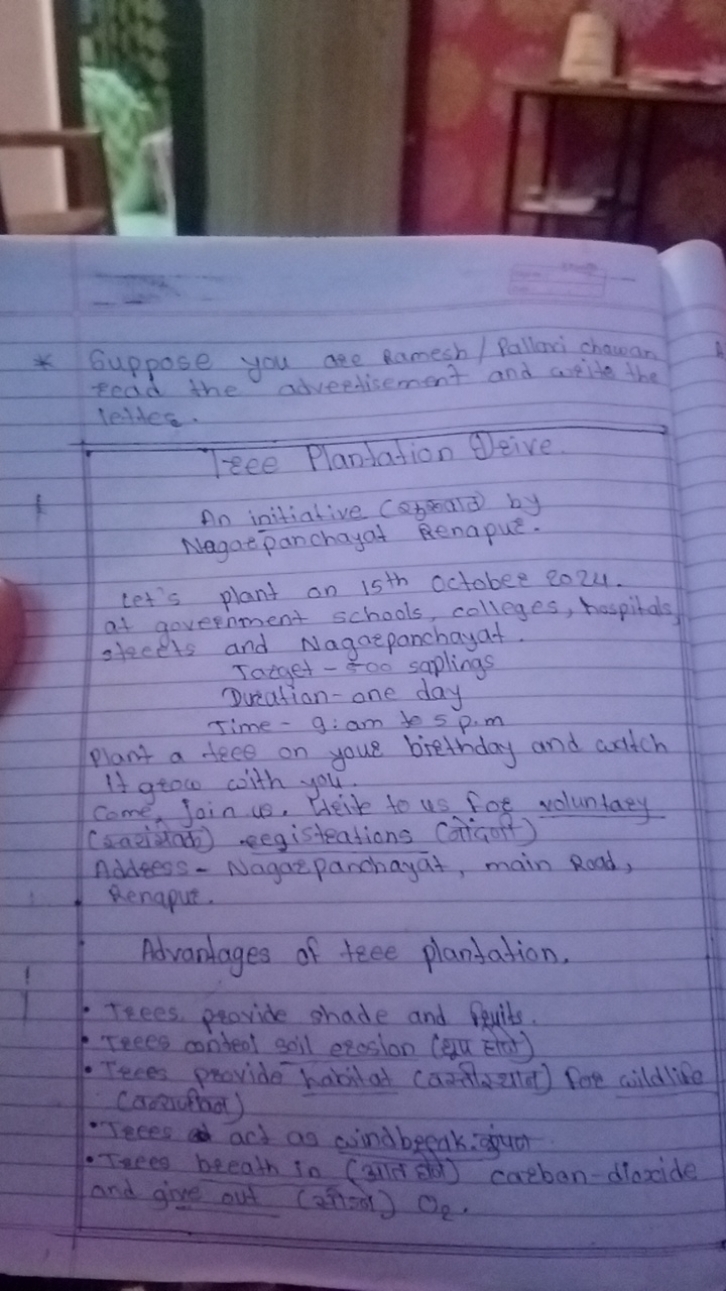 * Suppose you are Ramesh / Pallavi chavan
read the advertisement and write the
letter.
Tree Plantation Drive.
An initiative by
Nagarpanchayat Renapur.
Let's plant on 15th October 2024.
at government schools, colleges, hospitals,
streets and Nagarpanchayat.
Target - 500 saplings
Duration - one day
Time - 9: am to 5 p.m
Plant a tree on your birthday and watch
It grow with you.
Come, Join us. Write to us for voluntary
registrations (नोंदणी)
Address - Nagarpanchayat, main Road,
Renapur.
Advantages of tree plantation.
• Trees provide shade and fruits.
• Trees control soil erosion
• Trees provide habitat for wildlife
• Trees act as windbreak.
• Trees breath in (आत घेणे) carban-dioxide
and give out O2.